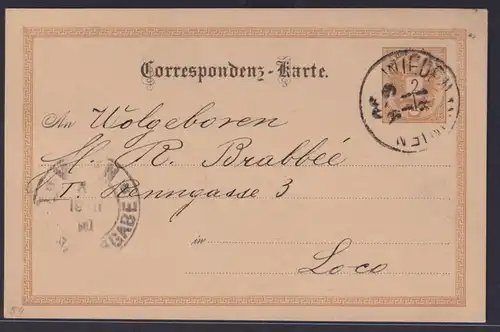 Correspondenz-Karte.
WIEDEN
WIEN
An Wolgeboren
H. R. Brabbée
I. Renngasse 3
in
Loco